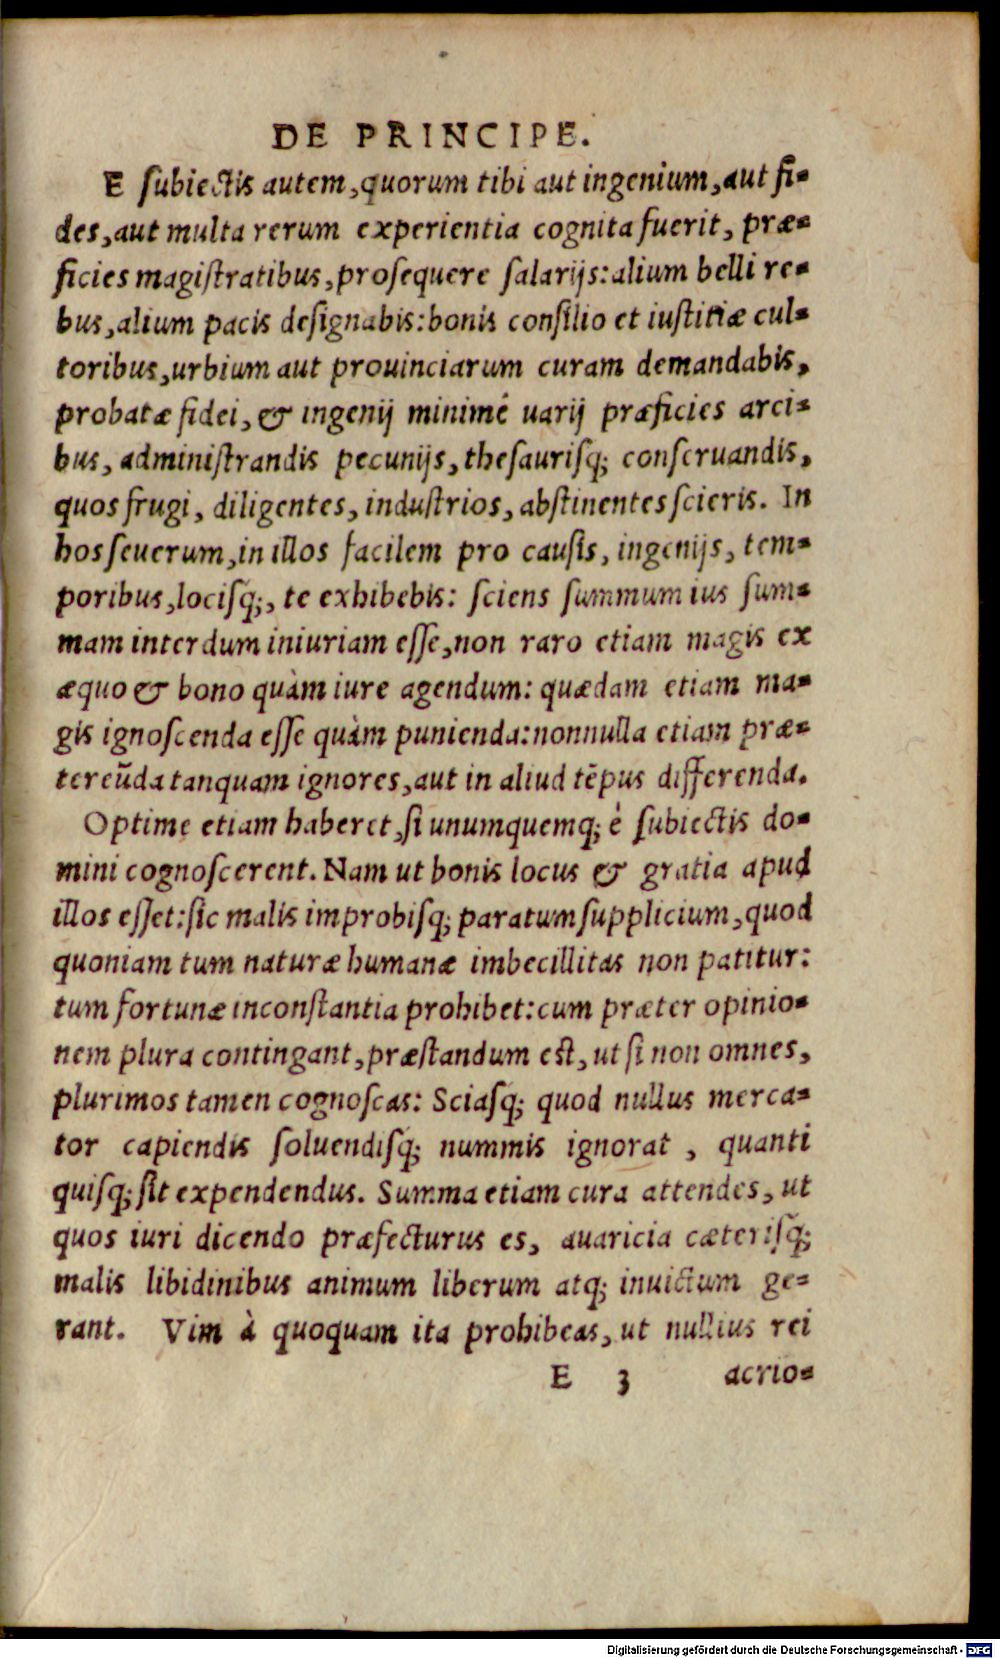 DE PRINCIPE.
E ſubiectis autem,quorum tibi aut ingenium,aut fi-
des,aut multa rerum experientia cognita fuerit, præ-
ficies magiſtratibus,proſequere ſalarijs:alium belli re-
bus,alium pacis deſignabis:bonis conſilio et iuſtitiæ cul-
toribus,urbium aut prouinciarum curam demandabis,
probatæ fidei,& ingenij minimé uarij præficies arci-
bus, adminiſtrandis pecunijs,theſauriſq; conſeruandis,
quos frugi, diligentes, induſtrios, abſtinentes ſcieris. In
hos ſeuerum,in illos facilem pro cauſis, ingenijs, tem-
poribus,lociſq́;, te exhibebis: ſciens ſummum ius ſum-
mam interdum iniuriam eſſe,non raro etiam magis ex
æquo & bono quàm iure agendum: quædam etiam ma-
gis ignoſcenda eſſe quàm punienda:nonnulla etiam præ-
tereũda tanquam ignores,aut in aliud tẽpus differenda.
Optime etiam haberet,ſi unumquemq; è ſubiectis do-
mini cognoſcerent. Nam ut bonis locus & gratia apud
illos eſſet:ſic malis improbiſq; paratum ſupplicium,quod
quoniam tum naturæ humanæ imbecillitas non patitur:
tum fortunæ inconſtantia prohibet:cum præter opinio-
nem plura contingant,præſtandum eſt, ut ſi non omnes,
plurimos tamen cognoſcas: Sciaſq; quod nullus merca-
tor capiendis ſoluendiſq; nummis ignorat , quanti
quiſq; ſit expendendus. Summa etiam cura attendes, ut
quos iuri dicendo præfecturus es, auaricia cæteriſq́;
malis libidinibus animum liberum atq; inuictum ge-
rant. Vim à quoquam ita prohibeas, ut nullius rei
E 3 acrio-
Digitalisierung gefördert durch die Deutsche Forschungsgemeinschaft - DFG